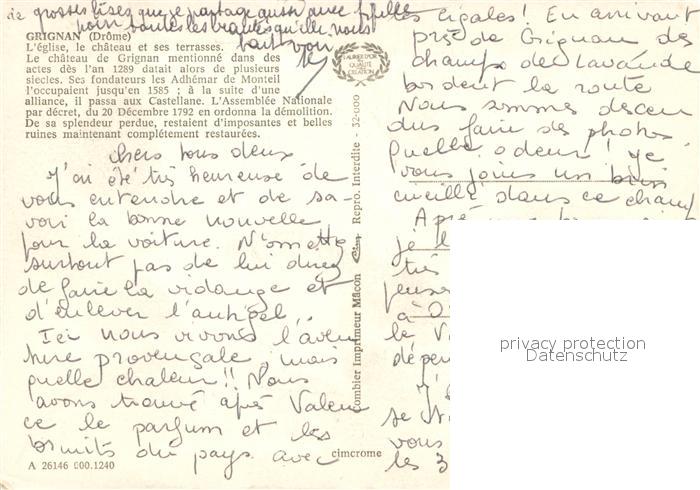 de grosses bises que je partage aussi avec
pour toutes les beautés qu'elle nous
fait voir
GRIGNAN (Drôme)
L'église, le château et ses terrasses.
Le château de Grignan mentionné dans des
actes dès l'an 1289 datait alors de plusieurs
siècles. Ses fondateurs les Adhémar de Monteil
l'occupaient jusqu'en 1585 ; à la suite d'une
alliance, il passa aux Castellane. L'Assemblée Nationale
par décret, du 20 Décembre 1792 en ordonna la démolition.
De sa splendeur perdue, restaient d'imposantes et belles
ruines maintenant complétement restaurées.
Chers tous deux
J'ai été très heureuse de
vous entendre et de sa-
voir la bonne nouvelle
pour la voiture. N'omettez
surtout pas de lui
de faire la vidange et
d'enlever l'antigel..
Ici nous vivons l'aven
ture provençale mais
quelle chaleur!! Nous
avons trouvé après Valen
ce le parfum et les
bruits du pays avec
A 26146 000.1240
cimcrome
LAURÉAT D'OR
DE QUALITÉ
DE CRÉATION
Combier Imprimeur Mâcon Cim Repro. Interdite - 32-000
les cigales! En arrivant
près de Grignan des
champs de lavande
bordent la route
Nous sommes descen
dus faire des photos
quelle odeur! je
vous joins un brin
cueilli dans ce champ
Après
je l
très
penser
à O
le V
dépen
J'
se
vous
les 3
privacy protection
Datenschutz